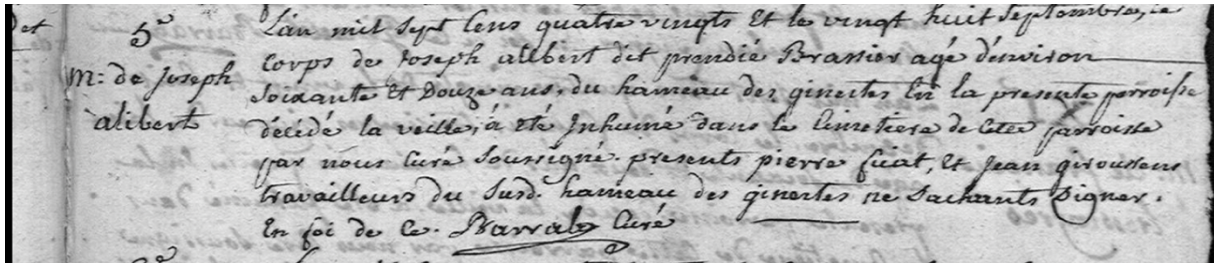 5e
M: de Joseph
alibert
L'an mil sept cens quatre vingts et le vingt huit septembre, le
corps de Joseph alibert dit prendié Brassier agé d'environ
soixante et douze ans, du hameau des ginestes en la presente parroisse
décédé la veille, à été inhumé dans le cimetiere de cete parroisse
par nous curé soussigné. presents pierre fuiat, et jean girousens
travailleurs du susd. hameau des ginestes ne sachants signer.
en foi de ce. Barral curé